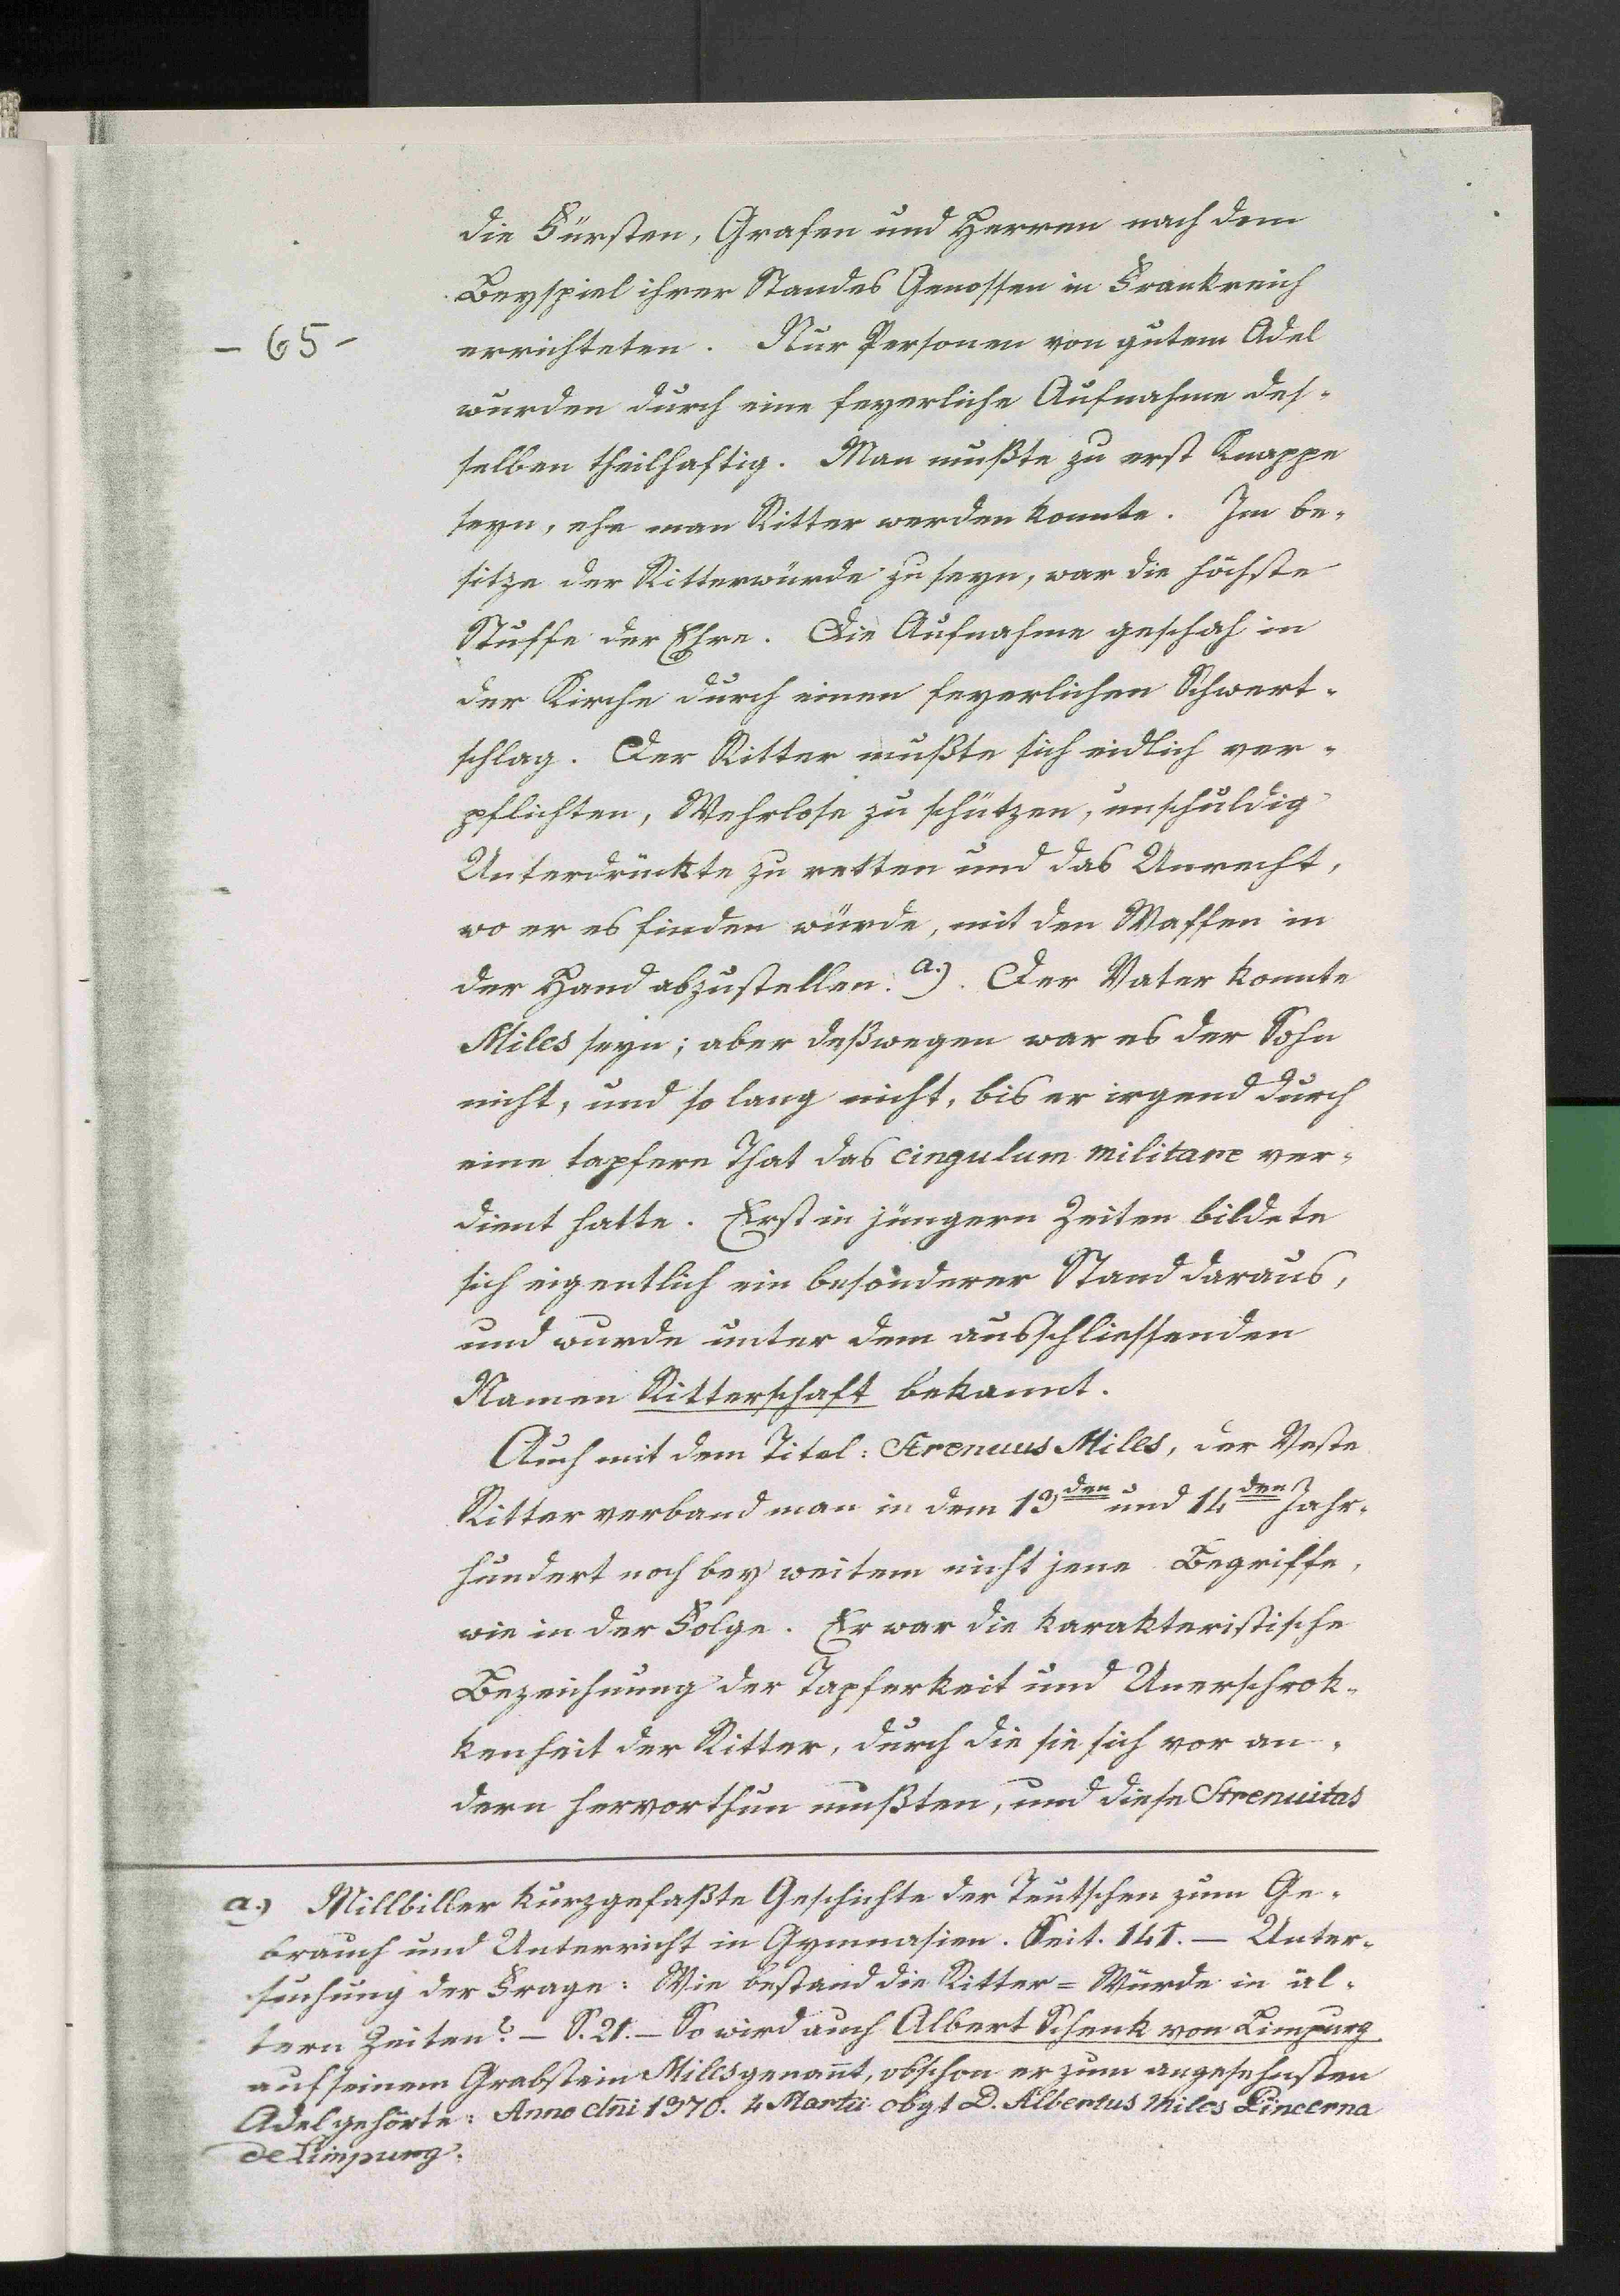 die Fürsten, Grafen und Herren nach dem
Beyspiel ihrer Standes Genossen in Frankreich
- 65 -
errichteten. Nur Personen von gutem Adel
wurden durch eine feyerliche Aufnahme des-
selben theilhaftig. Man mußte zu erst Knappe
seyn, ehe man Ritter werden konnte. Im be-
sitze der Ritterwürde zu seyn, war die höchste
Stuffe der Ehre. Die Aufnahme geschah in
der Kirche durch einen feyerlichen Schwert-
schlag. Der Ritter mußte sich eidlich ver-
pflichten, Wehrlose zu schützen, unschuldig
Unterdrückte zu retten und das Unrecht,
wo er es finden würde, mit den Waffen in
der Hand abzustellen. a.). Der Vater konnte
Miles seyn; aber deßwegen war es der Sohn
nicht, und so lang nicht, bis er irgend durch
eine tapfere That das cingulum militare ver-
dient hatte. Erst in jüngern Zeiten bildete
sich eigentlich ein besonderer Stand daraus,
und wurde unter dem ausschliessenden
Namen Ritterschaft bekannt.
Auch mit dem Titel: Strenuus Miles, der Veste
Ritter verband man in dem 13den und 14den Jahr-
hundert noch bey weitem nicht jene Begriffe,
wie in der Folge. Er war die karakteristische
Bezeichnung der Tapferkeit und Unerschrok-
kenheit der Ritter, durch die sie sich vor an-
dern hervorthun mußten, und diese Strenuitas
a.) Millbiller kurzgefaßte Geschichte der Teutschen zum Ge-
brauch und Unterricht in Gymnasien. Seit. 141. — Unter-
suchung der Frage: Wie bestand die Ritter=Würde in äl-
tern Zeiten? — S. 21. — So wird auch Albert Schenk von Limpurg
auf seinem Grabstein Miles genañt, obschon er zum angesehnsten
Adel gehörte: Anno dñi 1370. 4 Martii obyt D. Albertus Miles Pincerna
de Limpurg.